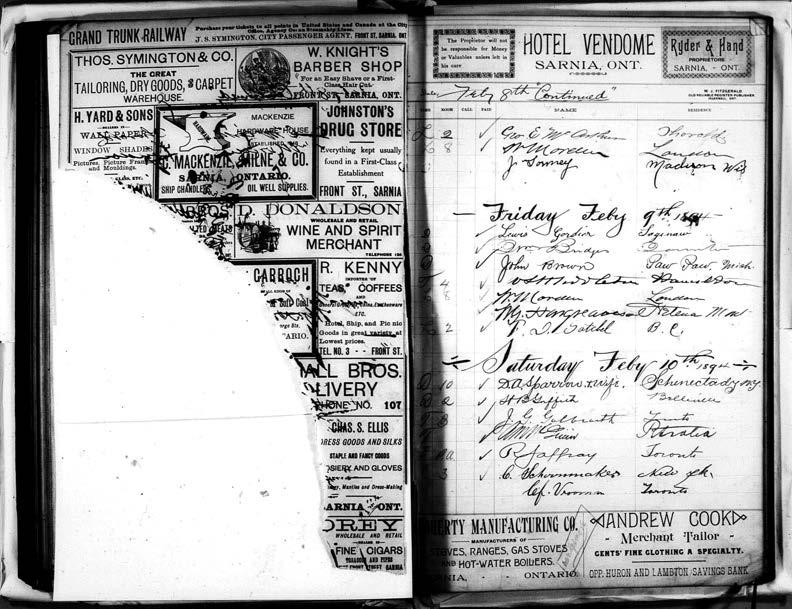 GRAND TRUNK RAILWAY
Purchase your tickets to all points in United States and Canada at the City
Office, Agency
J. S. SYMINGTON, CITY PASSENGER AGENT, FRONT ST. SARNIA, ONT
THOS. SYMINGTON & CO.
THE GREAT
TAILORING, DRY GOODS, & CARPET
WAREHOUSE.
W. KNIGHT'S
BARBER SHOP
For an Easy Shave or a First-
Class Hair Cut.
FRONT ST., SARNIA, ONT.
H. YARD & SONS
DEALERS IN
WALL PAPER
WINDOW SHADES
Pictures, Picture Frames
and Mouldings,
MACKENZIE
HARDWARE HOUSE
MACKENZIE, MILNE & CO.
SARNIA, ONTARIO.
SHIP CHANDLERS, OIL WELL SUPPLIES.
JOHNSTON'S
DRUG STORE
Everything kept usually
found in a First-Class
Establishment
FRONT ST., SARNIA
D. DONALDSON
WHOLESALE AND RETAIL
WINE AND SPIRIT
MERCHANT
TELEPHONE
GARROCH
Soft Coal
R. KENNY
IMPORTER OF
TEAS, COFFEES
AND
ETC.
Hotel, Ship, and Pic nic
Goods in great variety at
Lowest prices.
TEL. NO. 3 FRONT ST.
ALL BROS.
LIVERY
PHONE NO. 107
CHAS. S. ELLIS
DRESS GOODS AND SILKS
STAPLE AND FANCY GOODS
HOSIERY AND GLOVES
Mantles and Dress-Making
SARNIA, ONT.
OREY
WHOLESALE AND RETAIL
DEALER IN
FINE CIGARS
TOBACCO AND PIPES
FRONT STREET SARNIA
The Proprietor will not
be responsible for Money
or Valuables unless left in
his care
HOTEL VENDOME
SARNIA, ONT.
Ryder & Hand
PROPRIETORS
SARNIA, - ONT.
W. J. FITZGERALD
OLD RELIABLE REGISTER PUBLISHER
Feby 8th "Continued"
ROOM CALL PAID NAME RESIDENCE
2 Geo E McArthur Thorold
8 W Morden London
J. Madison Wis
Friday Feby 9th 1894
Lewis Gordier Saginaw
Bridges
John Brown Paw Paw, Mich.
4 Middleton Hamilton
8 W Morden London
Hargreaves Helena Mont
2 B.C.
Saturday Feby 10th 1894
D 10 D.A. Sparrow & wife Schenectady N.Y.
D 2 Griffith Belleville
J. G. Galbraith Toronto
R Jaffray Toronto
3 C. Schoonmaker New York
Vrooman Toronto
DOHERTY MANUFACTURING CO.
MANUFACTURERS OF
STOVES, RANGES, GAS STOVES
AND HOT-WATER BOILERS.
SARNIA, - ONTARIO
ANDREW COOK
- Merchant Tailor -
GENTS' FINE CLOTHING A SPECIALTY.
OPP. HURON AND LAMBTON SAVINGS BANK